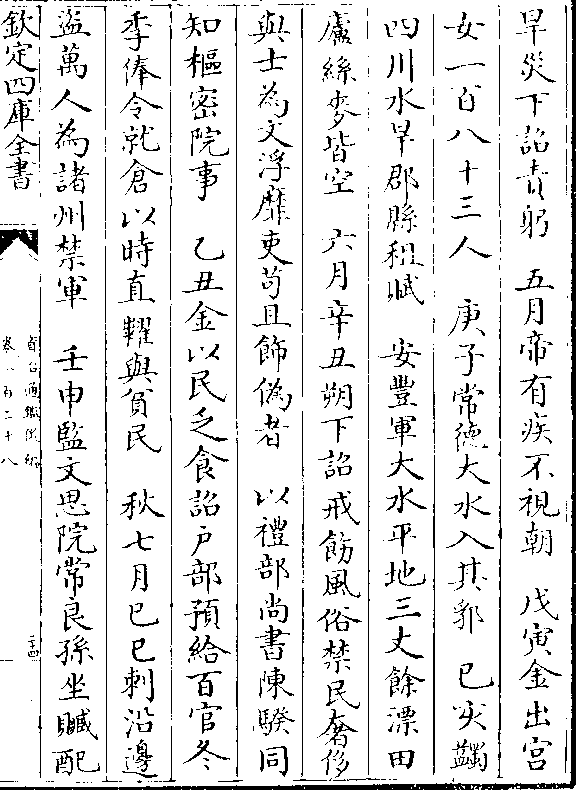 旱災下詔責躬　五月帝有疾不視朝　戊寅金出宮
女一百八十三人　庚子常徳大水入其郛　己亥蠲
四川水旱郡縣租賦　安豐軍大水平地三丈餘漂田
廬絲麥皆空　六月辛丑朔下詔戒飭風俗禁民奢侈
與士為文浮靡吏苟且飾偽者　以禮部尚書陳騤同
知樞密院事　乙丑金以民乏食詔戶部預給百官冬
季俸令就倉以時直糶與貧民　秋七月己巳刺沿邊
盜萬人為諸州禁軍　壬申監文思院常良孫坐贓配
欽定四庫全書
資治通鑑後編
卷一百二十八
二十四